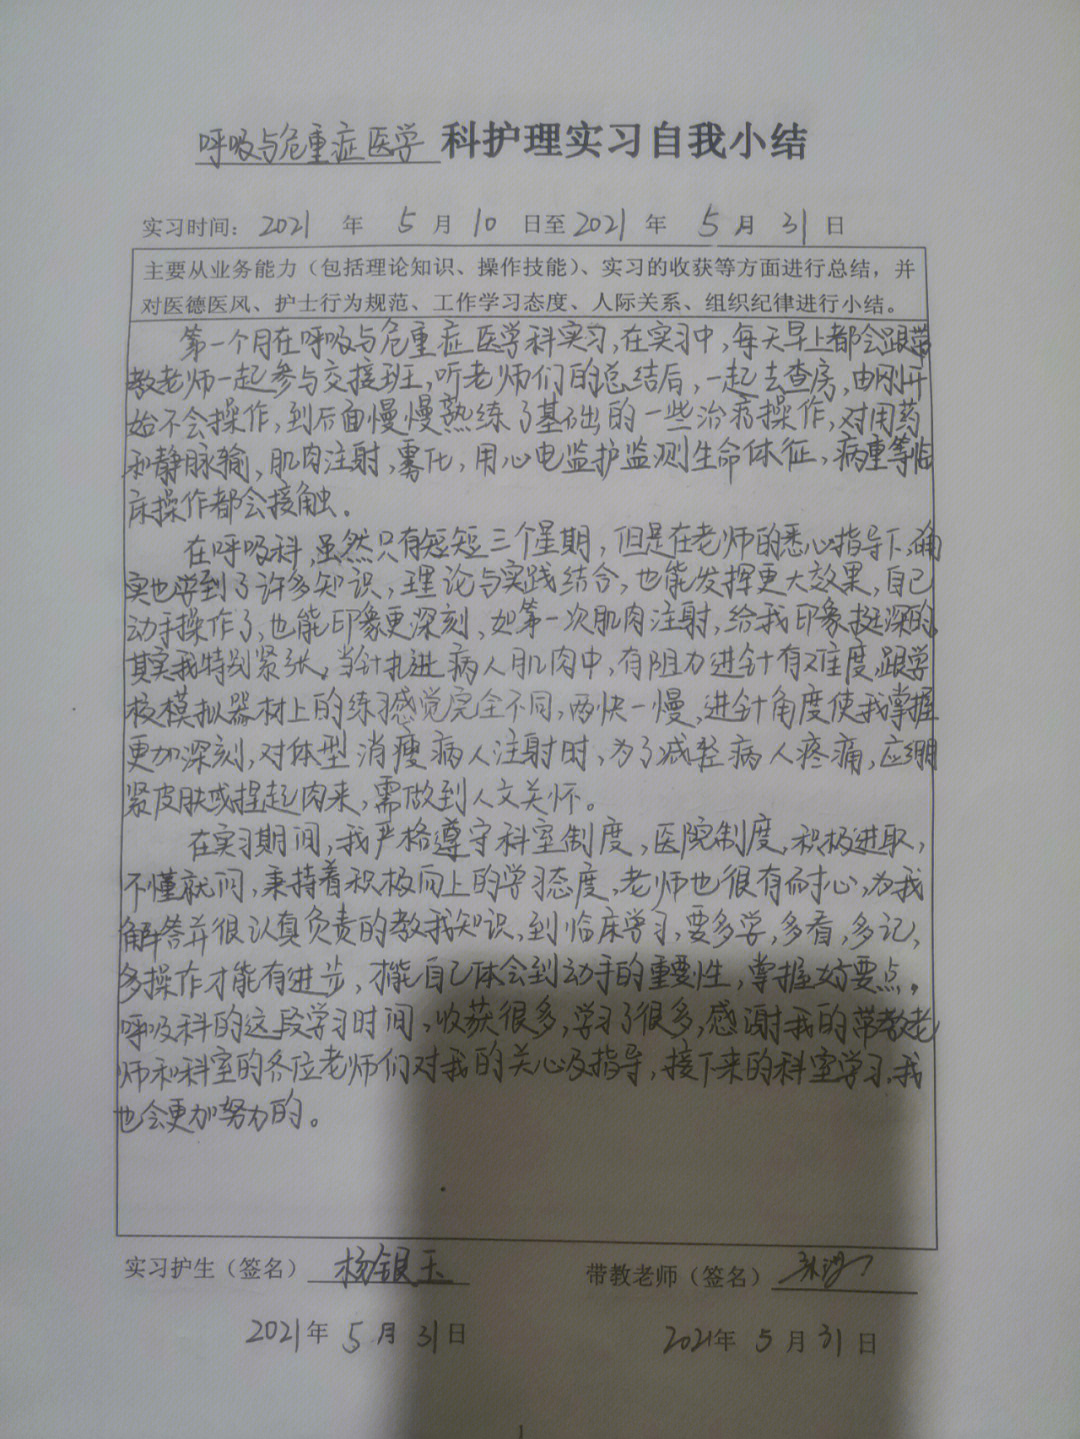 呼吸与危重症医学 科护理实习自我小结
实习时间：2021 年 5 月 10 日至 2021 年 5 月 31 日
主要从业务能力（包括理论知识、操作技能）、实习的收获等方面进行总结，并
对医德医风、护士行为规范、工作学习态度、人际关系、组织纪律进行小结。
第一个月在呼吸与危重症医学科实习，在实习中，每天早上都会跟带
教老师一起参与交接班，听老师们的总结后，一起去查房，由刚开
始不会操作，到后面慢慢熟练了基础的一些治疗操作，对用药
和静脉输，肌肉注射，雾化，用心电监护监测生命体征，病重等临
床操作都会接触。
在呼吸科，虽然只有短短三个星期，但是在老师的悉心指导下，确
实也学到了许多知识，理论与实践结合，也能发挥更大效果，自己
动手操作了，也能印象更深刻，如第一次肌肉注射，给我印象挺深的，
其实我特别紧张，当针扎进病人肌肉中，有阻力进针有难度，跟学
校模拟器材上的练习感觉完全不同，两快一慢，进针角度使我掌握
更加深刻，对体型消瘦病人注射时，为了减轻病人疼痛，应绷
紧皮肤或捏起肉来，需做到人文关怀。
在实习期间，我严格遵守科室制度，医院制度，积极进取，
不懂就问，秉持着积极向上的学习态度，老师也很有耐心，为我
解答并很认真负责的教我知识，到临床学习，要多学，多看，多记，
多操作才能有进步，才能自己体会到动手的重要性，掌握好要点。
呼吸科的这段学习时间，收获很多，学习了很多，感谢我的带教老
师和科室的各位老师们对我的关心及指导，接下来的科室学习，我
也会更加努力的。
实习护生（签名）杨银玉 带教老师（签名）
2021年 5 月 31日 2021年 5 月 31 日
1